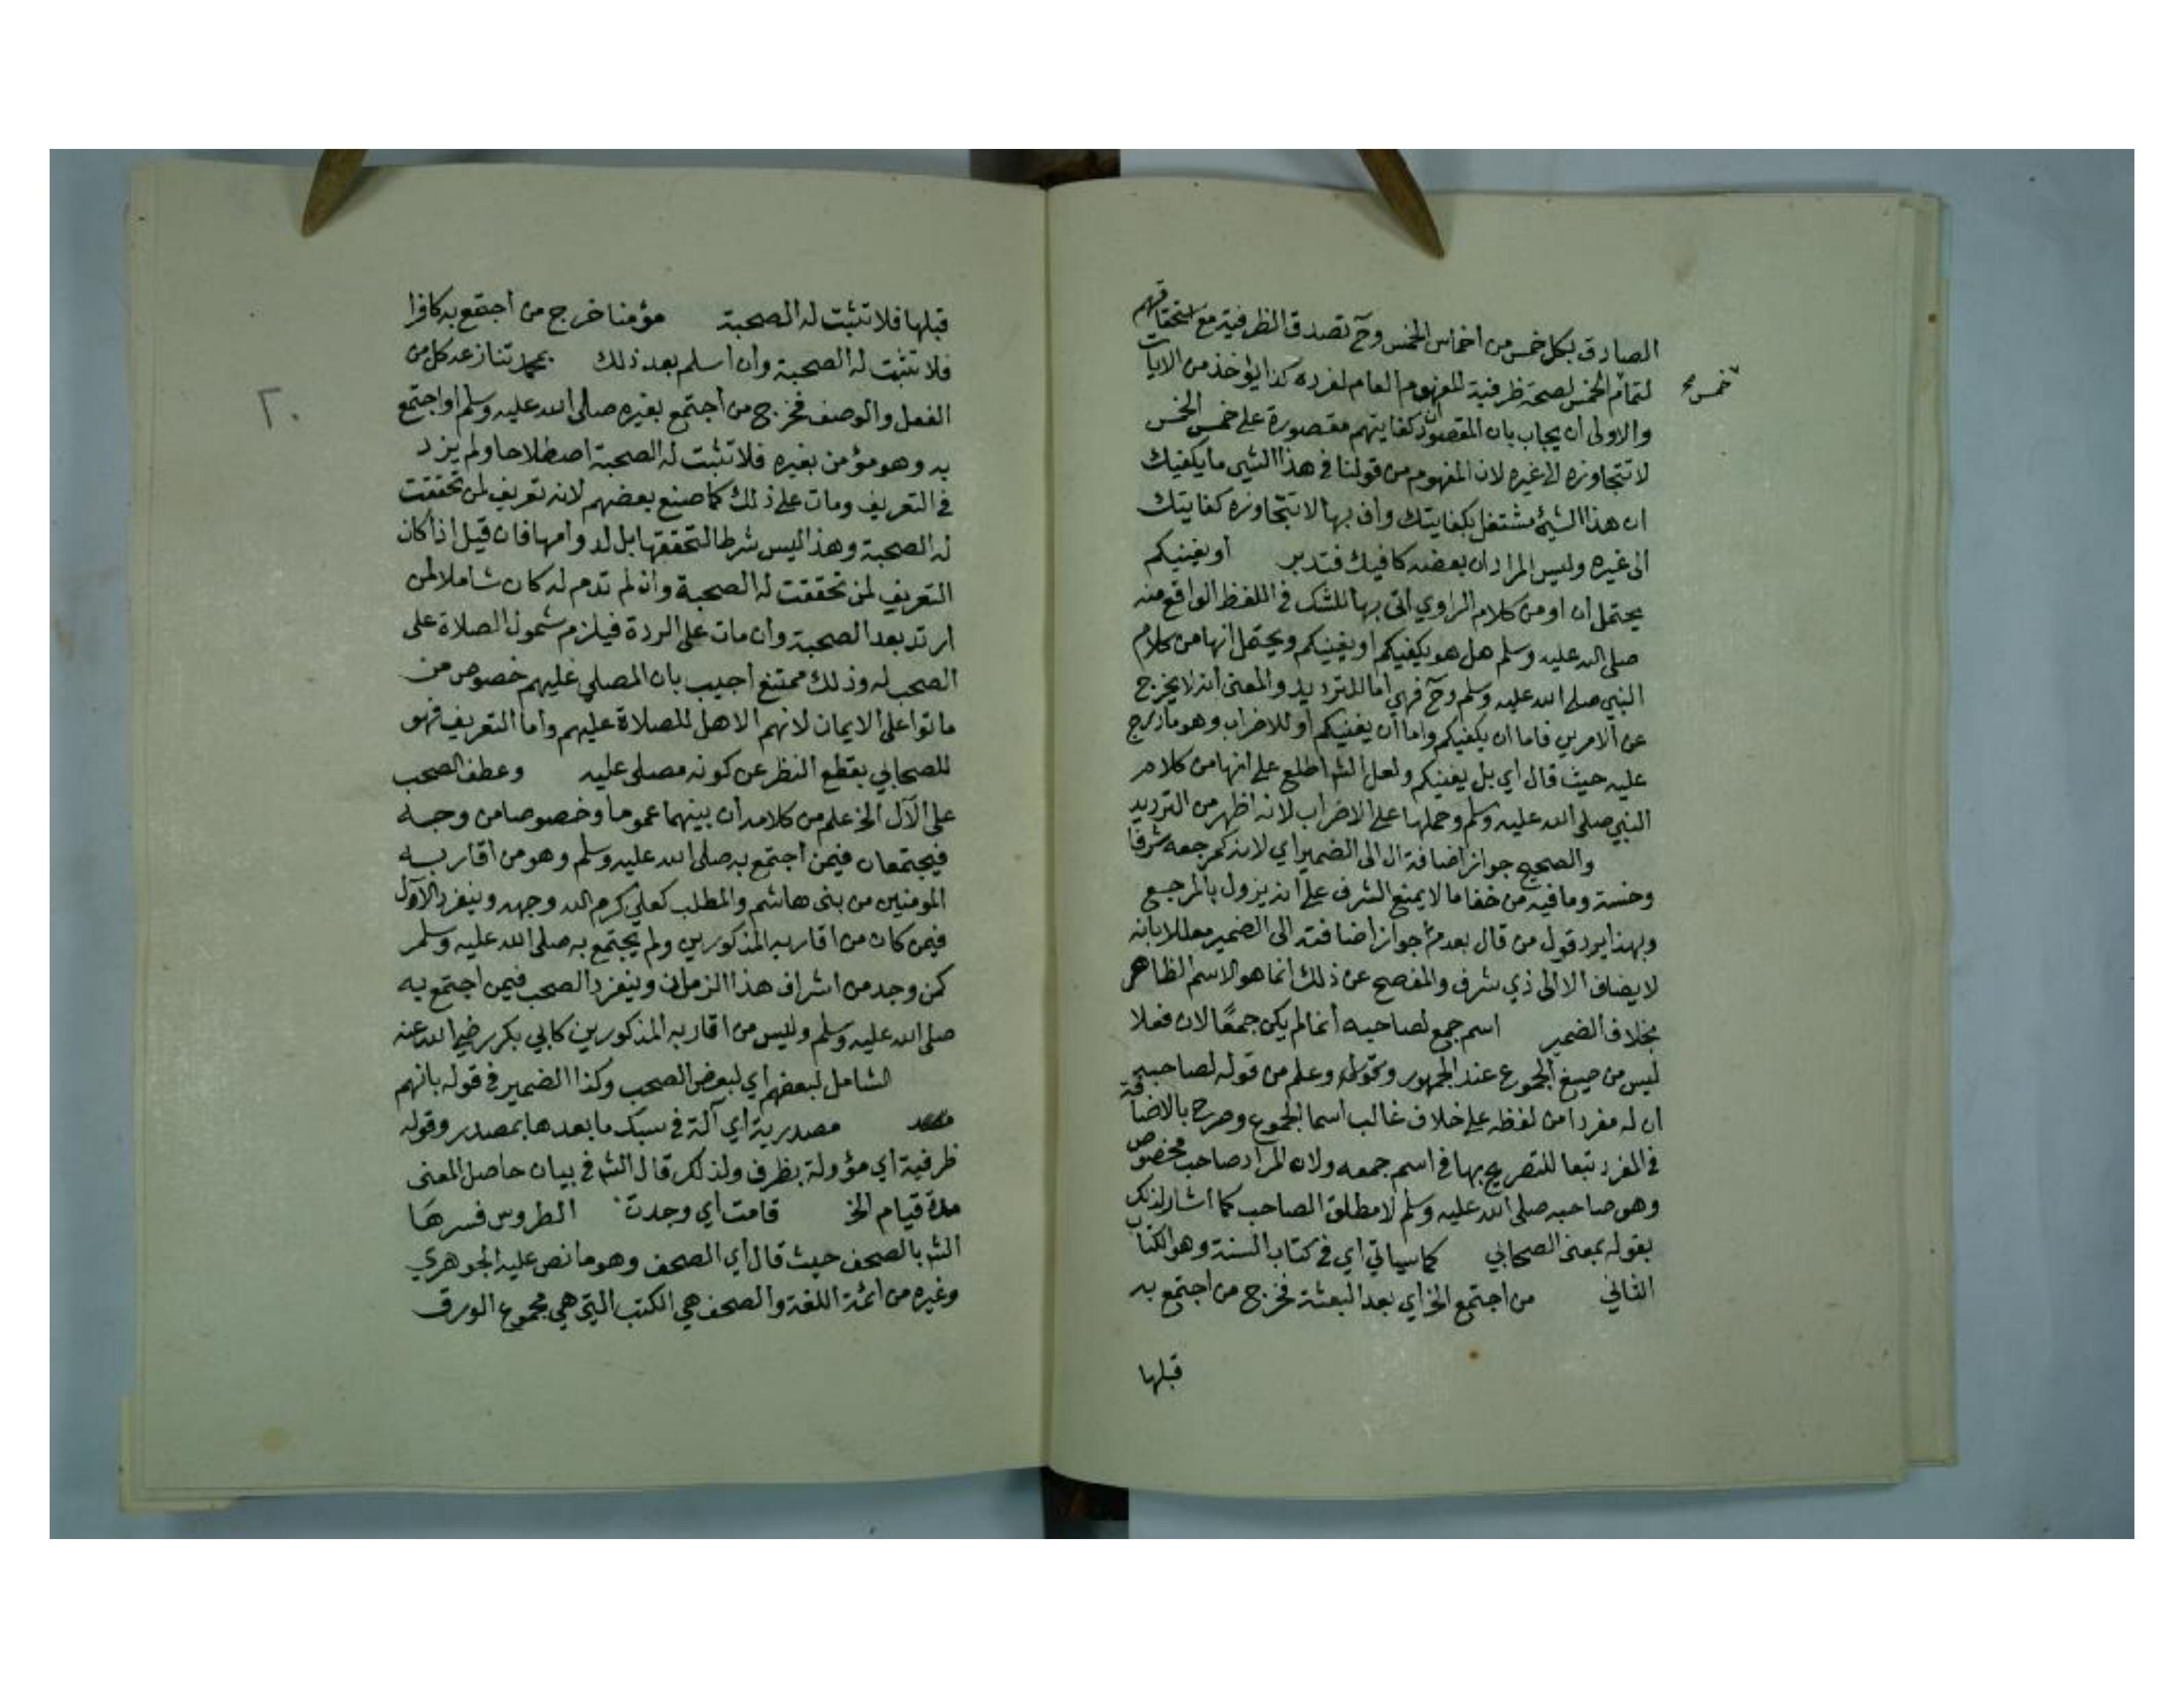 الصادق بكل خمس من اخماس الخمس وح تصدق الظرفية مع استحقاقهم
لتمام الخمس لصحة ظرفية المفهوم العام لفرده كذا يؤخذ من الايات
خمس صح
والاولى ان يجاب بان المقصود ان كفايتهم مقصورة على خمس الخمس
لا تتجاوزه الى غيره لان المفهوم من قولنا في هذا الشي ما يكفيك
ان هذا الشئ مشتغل بكفايتك واف بها لا تتجاوزه كفايتك
الى غيره وليس المراد ان بعضه كافيك فتدبر او يغنيكم
يحتمل ان او من كلام الراوي اتى بها للشك في اللفظ الواقع منه
صلى الله عليه وسلم هل هو يكفيكم او يغنيكم ويحتمل انها من كلام
النبي صلى الله عليه وسلم وح فهي اما للترديد والمعنى انه لا يخرج
عن الامرين فاما ان يكفيكم واما ان يغنيكم او للاضراب وهو ما درج
عليه حيث قال اي بل يغنيكم ولعل الش اطلع على انها من كلام
النبي صلى الله عليه وسلم وحملها على الاضراب لانه اظهر من الترديد
والصحيح جواز اضافة ال الى الضمير اي لانه كمرجعه شرفا
وخسة وما فيه من خفا ما لا يمنع الشرف على انه يزول بالمرجع
وبهذا يرد قول من قال بعدم جواز اضافته الى الضمير معللا بانه
لا يضاف الا الى ذي شرف والمفصح عن ذلك انما هو الاسم الظاهر
بخلاف الضمير اسم جمع لصاحبه انما لم يكن جمعًا لان فعلا
ليس من صيغ الجموع عند الجمهور وعلم من قوله لصاحبه
ان له مفردا من لفظه على خلاف غالب اسما الجموع وصرح بالاضافة
في المفرد تبعا للتصريح بها في اسم جمعه ولان المراد صاحب مخصوص
وهو صاحبه صلى الله عليه وسلم لا مطلق الصاحب كما اشار لذلك
بقوله بمعنى الصحابي كما سياتي اي في كتاب السنة وهو الكتاب
الثاني من اجتمع الخ اي بعد البعثة فخرج من اجتمع به
قبلها
قبلها فلا تثبت له الصحبة مؤمنا خرج من اجتمع به كافرا
فلا تثبت له الصحبة وان اسلم بعد ذلك بمحمد تنازعه كل من
الفعل والوصف فخرج من اجتمع بغيره صلى الله عليه وسلم او اجتمع
٢٠
به وهو مؤمن بغيره فلا تثبت له الصحبة اصطلاحا ولم يزد
في التعريف ومات على ذلك كما صنع بعضهم لانه تعريف لمن تحققت
له الصحبة وهذا ليس شرطا لتحققها بل لدوامها فان قيل اذا كان
التعريف لمن تحققت له الصحبة وان لم تدم له كان شاملا لمن
ارتد بعد الصحبة وان مات على الردة فيلزم شمول الصلاة على
الصحب له وذلك ممتنع اجيب بان المصلي عليهم خصوص من
ماتوا على الايمان لانهم الاهل للصلاة عليهم واما التعريف فهو
للصحابي بقطع النظر عن كونه مصلى عليه وعطف الصحب
على الآل الخ علم من كلامه ان بينهما عموما وخصوصا من وجه
فيجتمعان فيمن اجتمع به صلى الله عليه وسلم وهو من اقاربه
المومنين من بني هاشم والمطلب كعلي كرم الله وجهه وينفرد الآل
فيمن كان من اقاربه المذكورين ولم يجتمع به صلى الله عليه وسلم
كمن وجد من اشراف هذا الزمان وينفرد الصحب فيمن اجتمع به
صلى الله عليه وسلم وليس من اقاربه المذكورين كابي بكر رضي الله عنه
الشامل لبعضهم اي لبعض الصحب وكذا الضمير في قوله بانهم
مصدرية اي آلة في سبك ما بعدها بمصدر وقوله
ظرفية اي مؤولة بظرف ولذلك قال الش في بيان حاصل المعنى
مدة قيام الخ قامت اي وجدت الطروس فسرها
الش بالصحف حيث قال اي الصحف وهو ما نص عليه الجوهري
وغيره من ائمة اللغة والصحف هي الكتب التي هي مجموع الورق